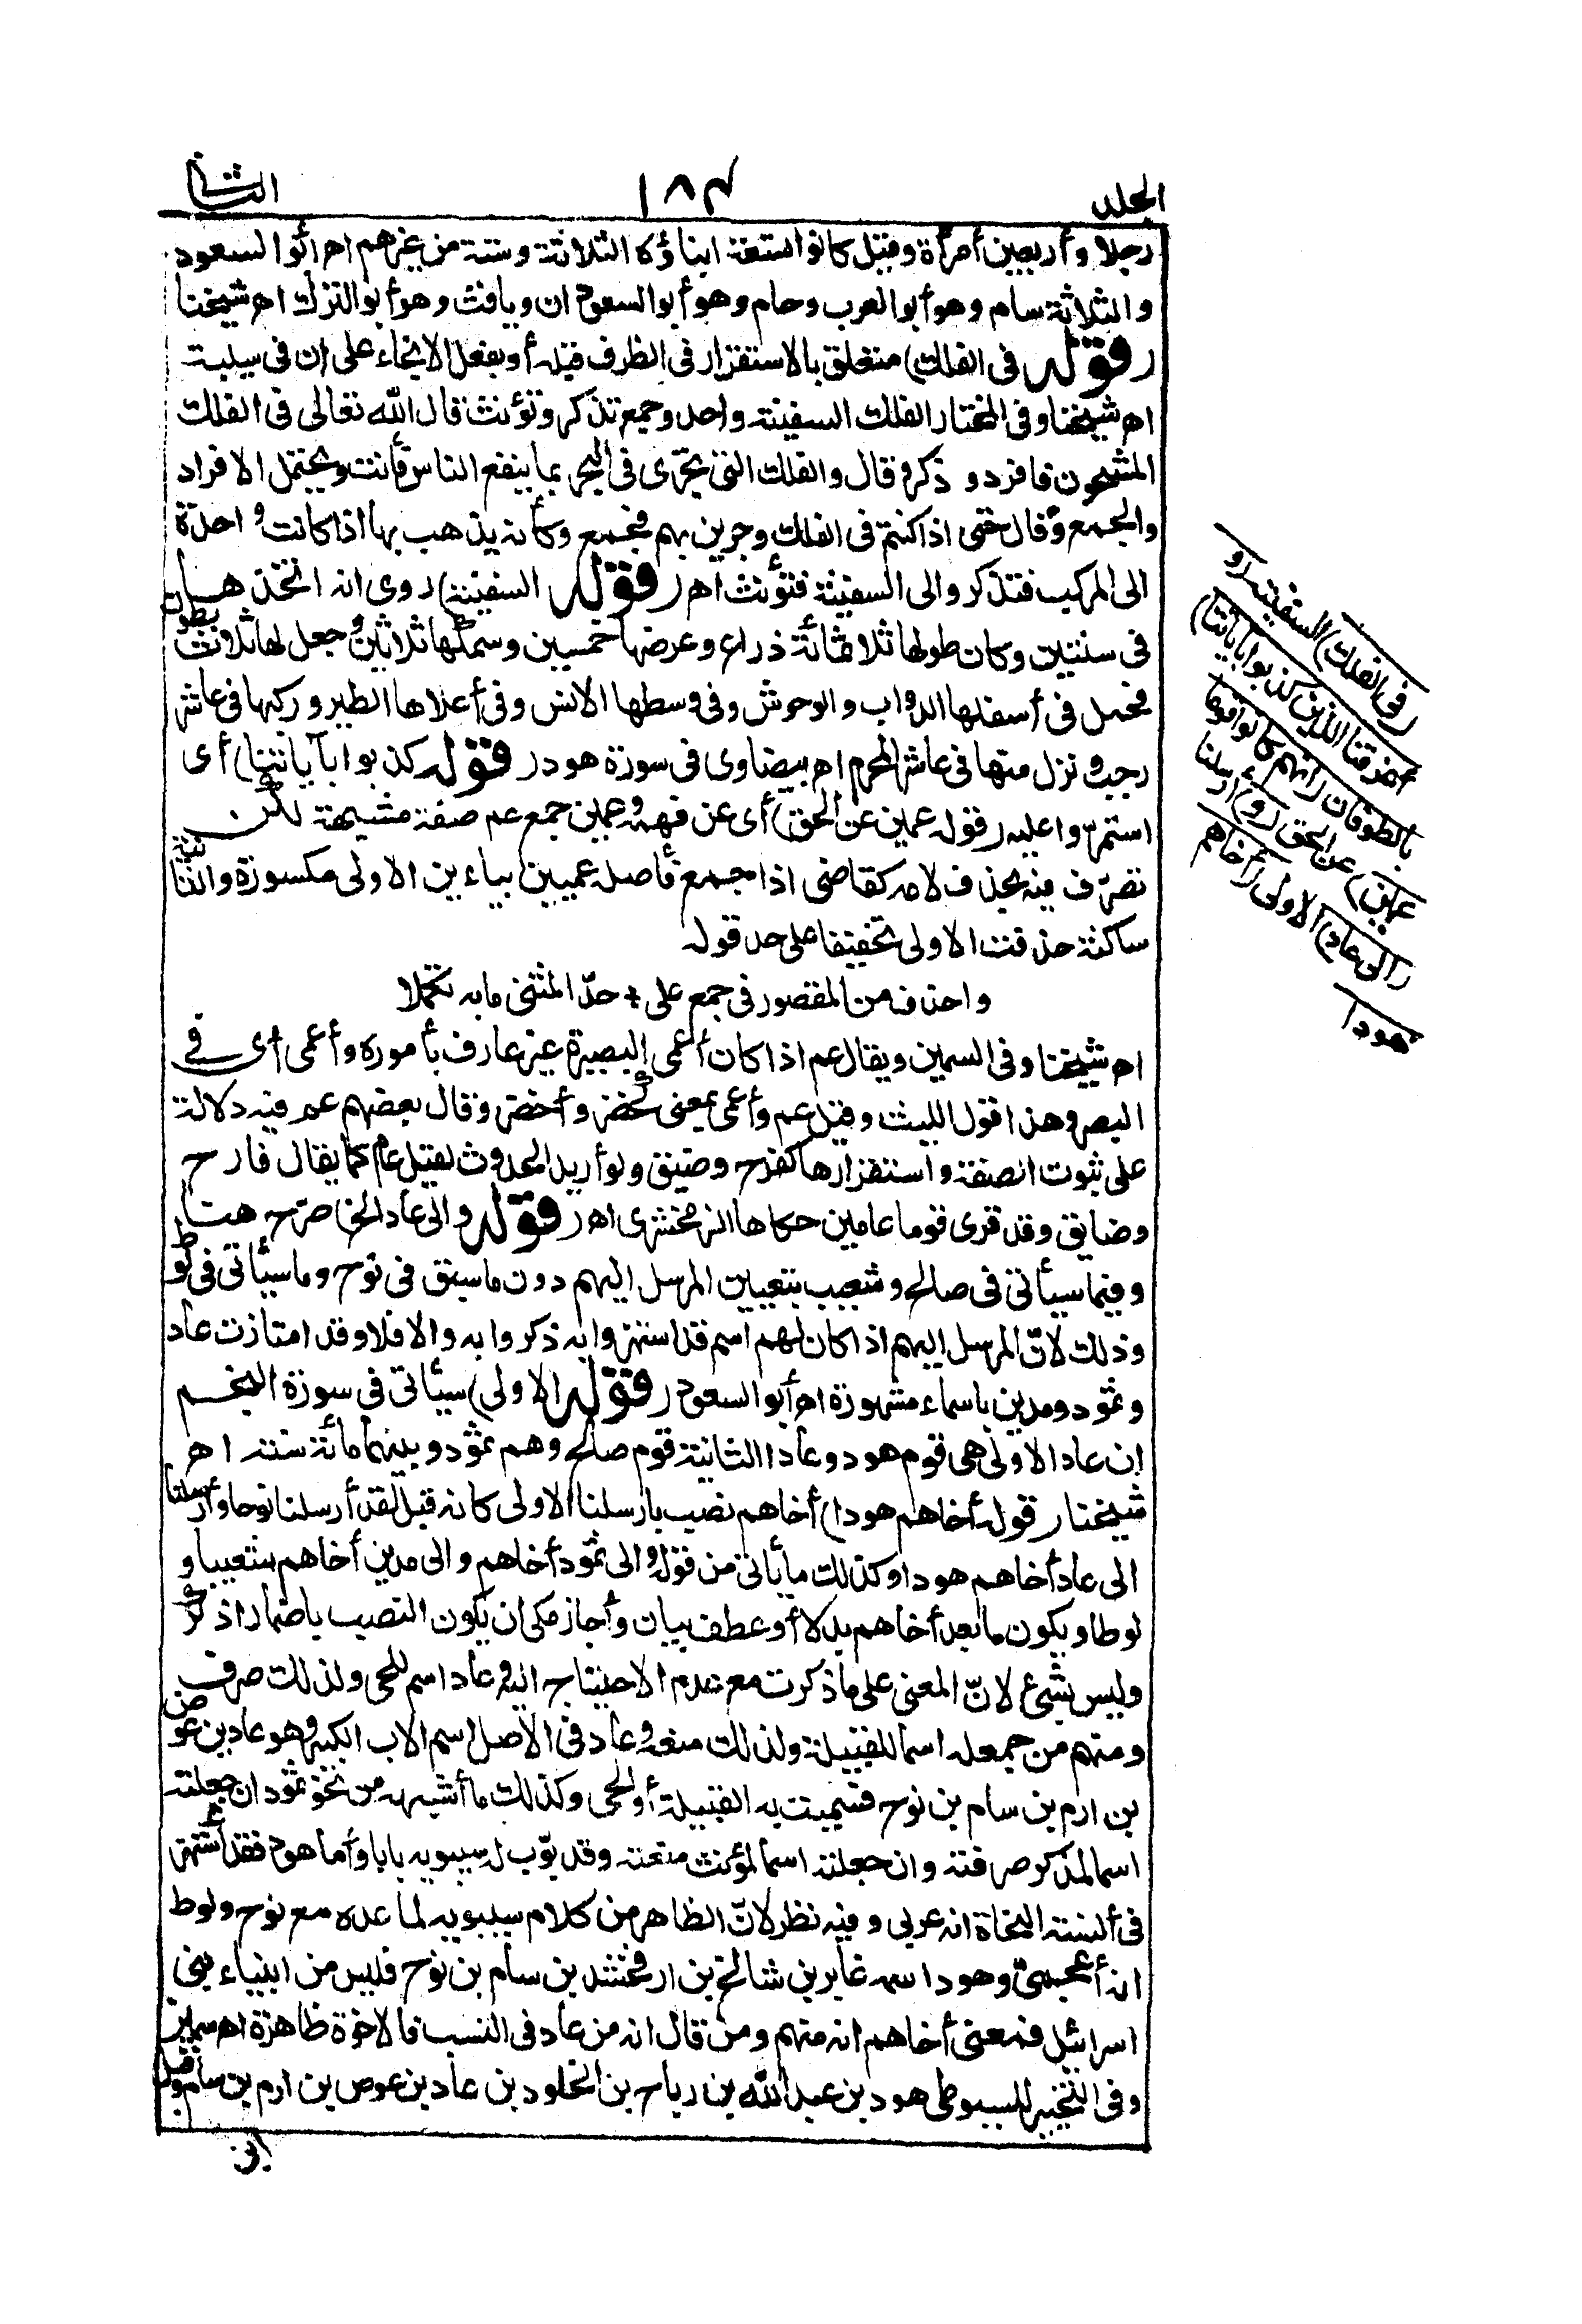 الجلد ١٨٤ الثانى
رجلا وأربعين أمرأة وقيل كانوا تسعة ابناؤه الثلاثة وستة من غيرهم اه أبو السعود
والثلاثة سام وهو أبو العرب وحام وهو أبو السودان ويافث وهو أبو الترك اه شيخنا
(قوله فى الفلك) متعلق بالاستقرار فى الظرف قبله أو بفعل الانجاء على ان فى سببية
اه شيخنا وفى المختار الفلك السفينة واحد وجمع تذكر وتؤنث قال الله تعالى فى الفلك
المشحون فافرد وذكر وقال والفلك التى تجرى فى البحر بما ينفع الناس فأنث ويحتمل الافراد
والجمع وقال حتى اذا كنتم فى الفلك وجرين بهم فجمع وكأنه يذهب بها اذا كانت واحدة
الى المركب فتذكر والى السفينة فتؤنث اه (قوله السفينة) روى انه اتخذها
فى سنتين وكان طولها ثلاثمائة ذراع وعرضها خمسين وسمكها ثلاثين وجعل لها ثلاث بطون
فحمل فى أسفلها الدواب والوحوش وفى وسطها الانس وفى أعلاها الطير وركبها فى عاشر
رجب ونزل منها فى عاشر المحرم اه بيضاوى فى سورة هود (قوله كذبوا بآياتنا) أى
استمروا عليه (قوله عمين عن الحق) أى عن فهمه وعمين جمع عم صفة مشبهة لكن
تصرّف فيه بحذف لامه كقاضى اذا جمع فأصله عميين بياءين الاولى مكسورة والثانية
ساكنة حذفت الاولى تخفيفا على حد قوله
واحذف من المقصور فى جمع على + حدّ المثنى ما به تكملا
اه شيخنا وفى السمين ويقال عم اذا كان أعمى البصيرة غير عارف بأموره وأعمى أى فى
البصر وهذا قول الليث وقيل عم وأعمى بمعنى كخضر وأخضر وقال بعضهم عم فيه دلالة
على ثبوت الصفة واستقرارها كفرح وضيق ولو أريد الحدوث لقيل عام كما يقال فارح
وضايق وقد قرئ قوما عامين حكاها الزمخشرى اه (قوله والى عاد الخ) صرّح هنا
وفيما سيأتى فى صالح وشعيب بتعيين المرسل اليهم دون ما سبق فى نوح وما سيأتى فى لوط
وذلك لانّ المرسل اليهم اذا كان لهم اسم قد اشتهروا به ذكروا به والا فلا وقد امتازت عاد
وثمود ومدين باسماء مشهورة اه أبو السعود (قوله الاولى) سيأتى فى سورة النجم
ان عادا الاولى هى قوم هود وعادا الثانية قوم صالح وهم ثمود وبينهما مائة سنة اه
شيخنا (قوله أخاهم هودا) أخاهم نصب بارسلنا الاولى كانه قيل لقد أرسلنا نوحا وأرسلنا
الى عاد أخاهم هودا وكذلك ما يأتى من قوله والى ثمود أخاهم والى مدين أخاهم شعيبا و
لوطا ويكون ما بعد أخاهم بدلا أو عطف بيان وأجاز مكى ان يكون النصب باضمار اذكر
وليس بشئ لانّ المعنى على ما ذكرت مع عدم الاحتياج اليه وعاد اسم للحى ولذلك صرف
ومنهم من جعله اسما للقبيلة ولذلك منعه وعاد فى الاصل اسم الاب الكبير وهو عاد بن عوص
بن ارم بن سام بن نوح فسميت به القبيلة أو الحى وكذلك ما أشبهه من نحو ثمود ان جعلته
اسما لمذكر صرفته وان جعلته اسما لمؤنث منعته وقد بوّب له سيبويه بابا وأما هود فقد أشتهر
فى ألسنة النحاة انه عربى وفيه نظر لانّ الظاهر من كلام سيبويه لما عده مع نوح ولوط
انه أعجمىّ وهود اسمه عابر بن شالخ بن ارفخشد بن سام بن نوح فليس من ابنياء بنى
اسرائيل فمعنى أخاهم انه منهم ومن قال انه من عاد فى النسب فالاخوة ظاهرة اه سمين
وفى التحبير للسيوطى هود بن عبد الله بن رباح بن الخلود بن عاد بن عوص بن ارم بن سام وقيل
ابن
(فى الفلك) السفينة (و
أغرقنا الذين كذبوا بآياتنا)
بالطوفان (انهم كانوا قوما
عمين) عن الحق (و) أرسلنا
(الى عاد) الاولى (أخاهم
هودا